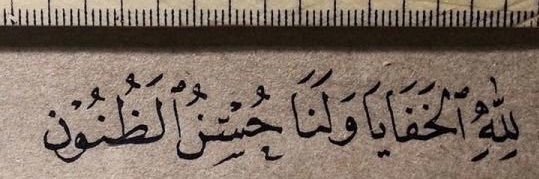 لِلّٰهِ ٱلْخَفَايَا وَلَنَا حُسْنُ ٱلظُنُوْنِ